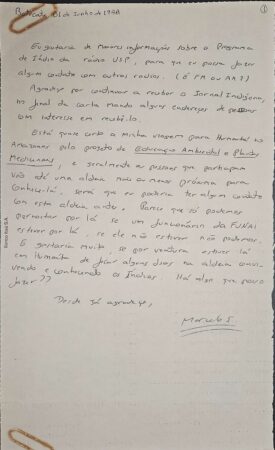 01 de Junho de 1998
①
Eu gostaria de maiores informações sobre o Programa
de Índio da rádio USP, para que eu possa fazer
algum contato com outras rádios. (É FM ou AM?)
Agradeço por continuar a receber o Jornal Indígena,
no final da carta mando alguns endereços de pessoas
com interesse em recebê-lo.
Está quase certo a minha viagem para Humaitá no
Amazonas pelo projeto de Educação Ambiental e Plantas
Medicinais, e geralmente as pessoas que participam
vão até uma aldeia mais ou menos próxima para
conhecê-la, será que eu poderia ter algum contato
com esta aldeia antes. Parece que só podemos
pernoitar por lá se um funcionário da FUNAI
estiver por lá, se ele não estiver não podemos.
E gostaria muito se por ventura estiver lá
em Humaitá de ficar alguns dias na aldeia convi-
vendo e conhecendo os Índios. Há algo que posso
fazer??
Desde já agradeço,
Marcelo S.
Acervo